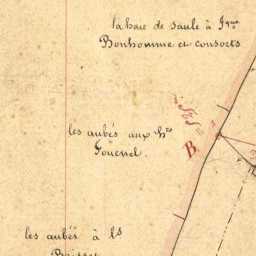 la haie de saule à Jque
Bonhomme et consorts
les aubés aux hrs
Gouenel
B
les aubés à ls